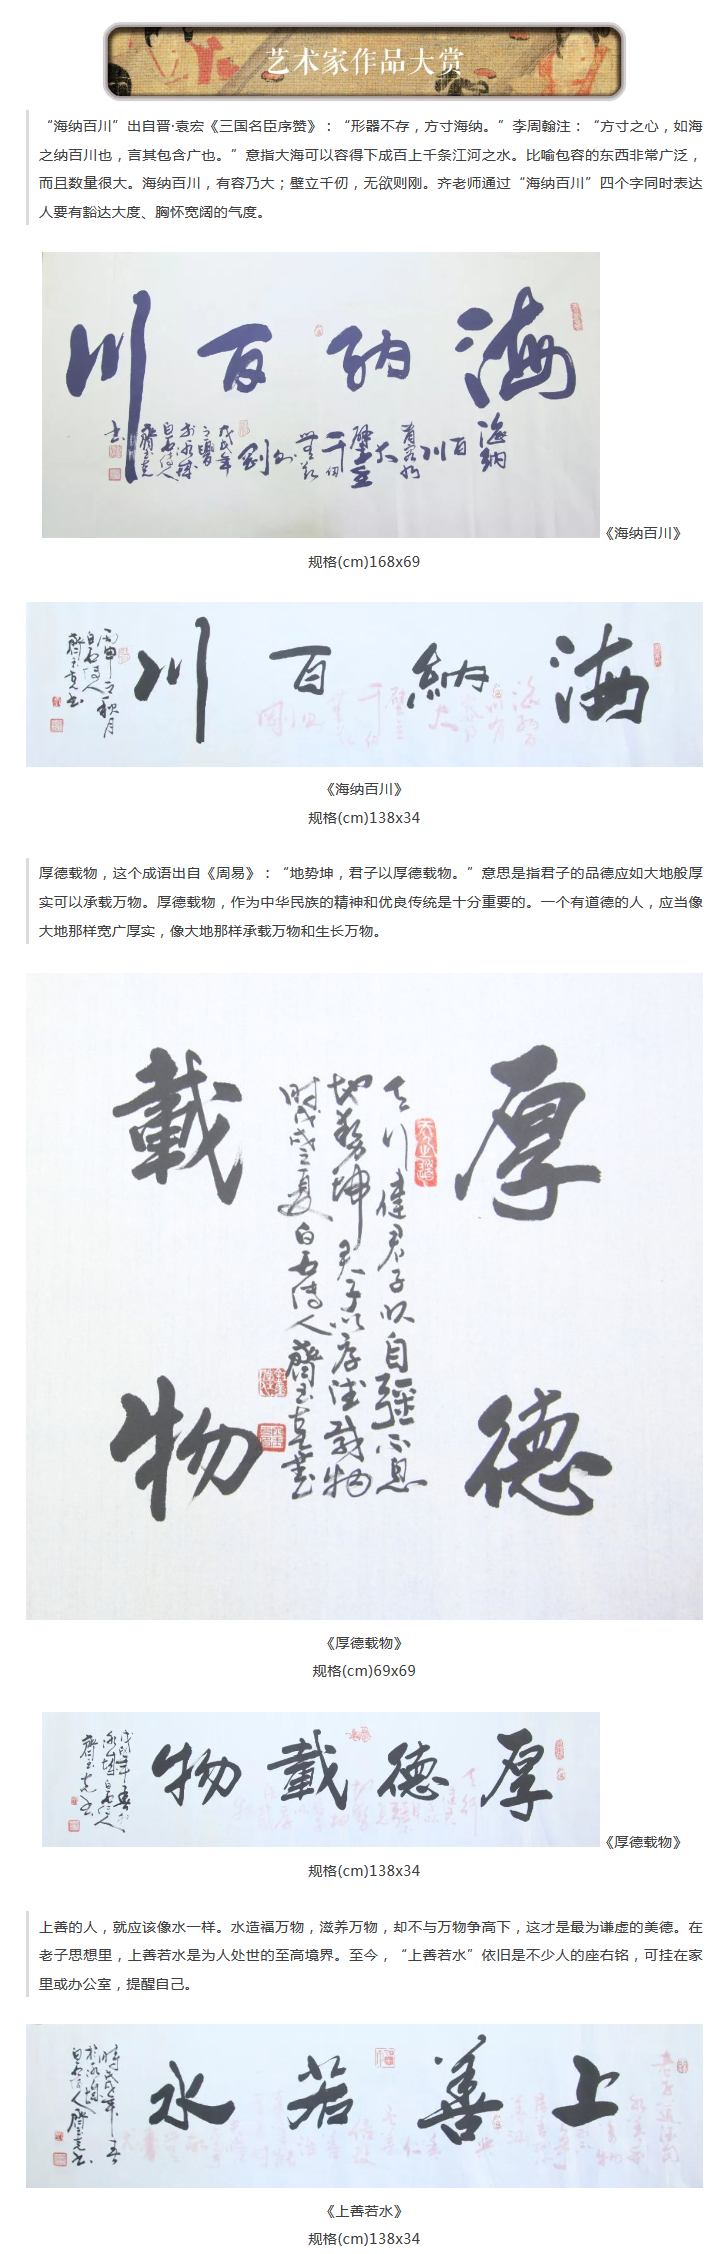 艺术家作品大赏
“海纳百川”出自晋·袁宏《三国名臣序赞》：“形器不存，方寸海纳。”李周翰注：“方寸之心，如海
之纳百川也，言其包含广也。”意指大海可以容得下成百上千条江河之水。比喻包容的东西非常广泛，
而且数量很大。海纳百川，有容乃大；壁立千仞，无欲则刚。齐老师通过“海纳百川”四个字同时表达
人要有豁达大度、胸怀宽阔的气度。
海納百川
海納
百川
有容乃
大
壁立
千仞
無欲
則
剛
戊戌年
之夏
於凉城
白石傳人
齊玉克
書
《海纳百川》
规格(cm)168x69
海納百川
丙申之秋月
白石傳人
齊玉克書
《海纳百川》
规格(cm)138x34
厚德载物，这个成语出自《周易》：“地势坤，君子以厚德载物。”意思是指君子的品德应如大地般厚
实可以承载万物。厚德载物，作为中华民族的精神和优良传统是十分重要的。一个有道德的人，应当像
大地那样宽广厚实，像大地那样承载万物和生长万物。
厚德載物
天行健君子以自强不息
地势坤君子以厚德载物
时戊戌之夏白石傳人齊玉克書
《厚德载物》
规格(cm)69x69
厚德載物
戊戌年春於
凉城白石傳人
齊玉克書
《厚德载物》
规格(cm)138x34
上善的人，就应该像水一样。水造福万物，滋养万物，却不与万物争高下，这才是最为谦虚的美德。在
老子思想里，上善若水是为人处世的至高境界。至今，“上善若水”依旧是不少人的座右铭，可挂在家
里或办公室，提醒自己。
上善若水
時戊戌年春
於凉城
白石傳人齊玉克書
《上善若水》
规格(cm)138x34